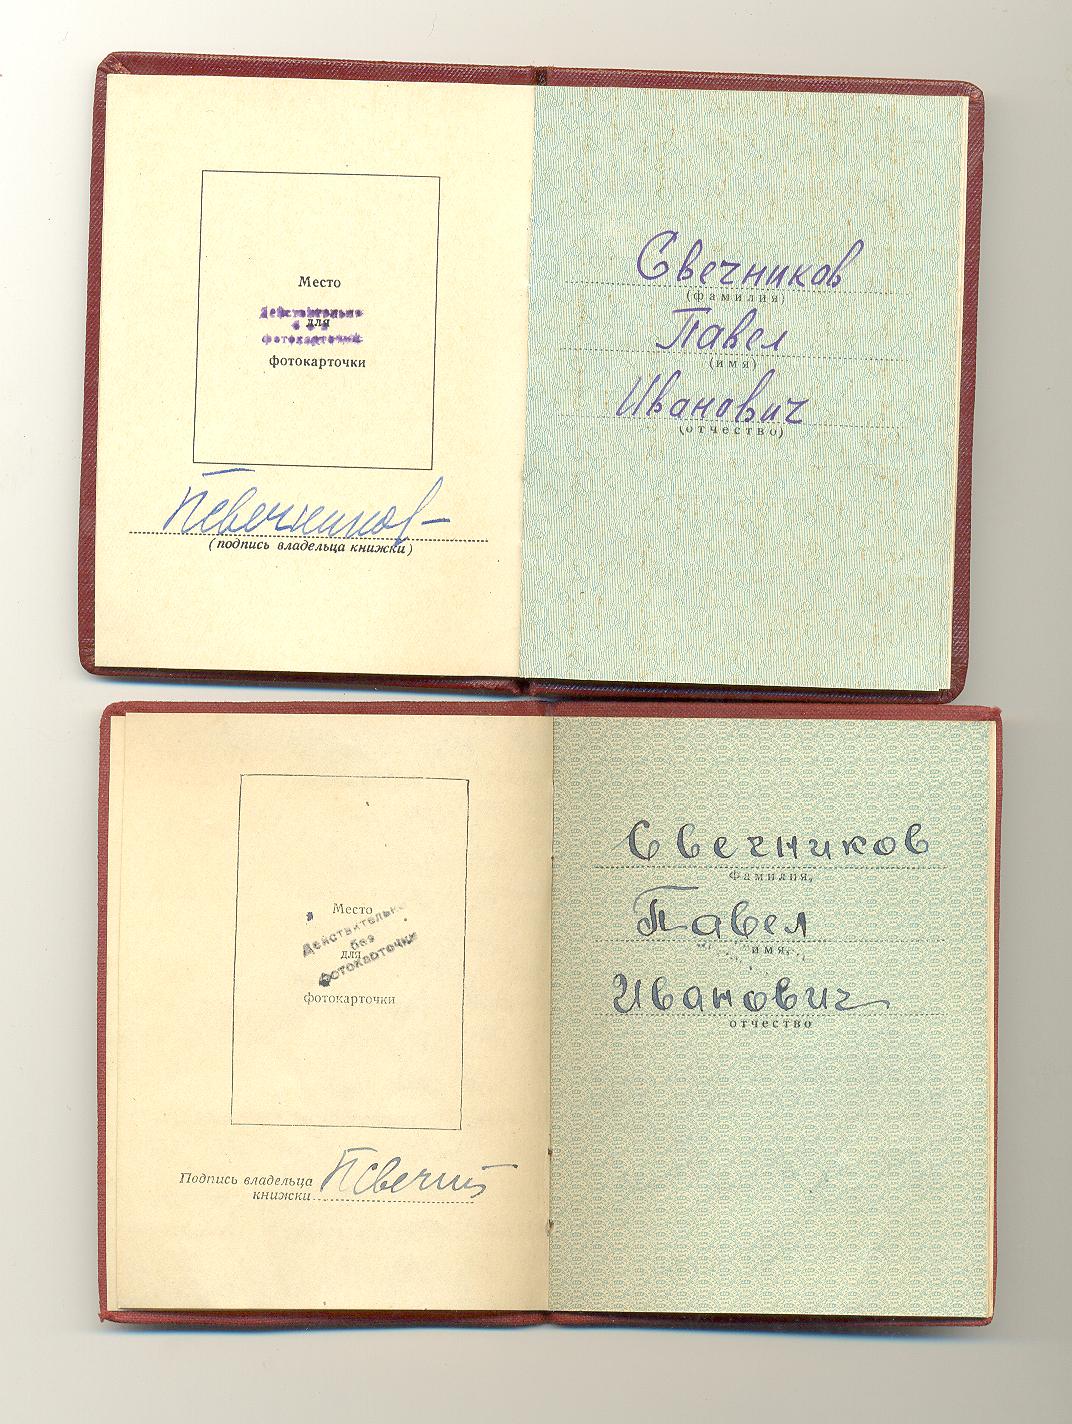 Место
Действительно
для
фотокарточки
фотокарточки
ПСвечников
(подпись владельца книжки)
Свечников
(фамилия)
Павел
(имя)
Иванович
(отчество)
Место
Действительно
без
для
фотокарточки
фотокарточки
Подпись владельца
книжки
Свечников
Фамилия,
Павел
имя,
Иванович
отчество